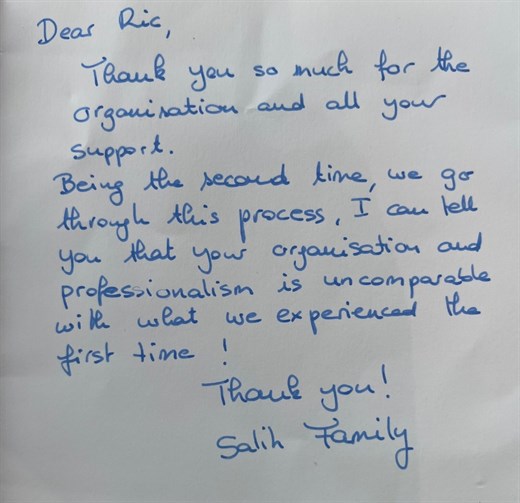 Dear Ric,
Thank you so much for the
organisation and all your
support.
Being the second time, we go
through this process, I can tell
you that your organisation and
professionalism is uncomparable
with what we experienced the
first time !
Thank you!
Salih Family